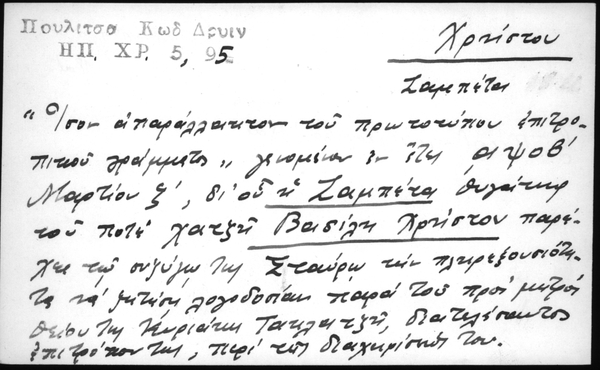 Πουλιτσα Κωδ Δρυιν
ΗΠ. ΧΡ. 5, 95
Χρήστου
Ζαμπέτα
"Ἴσον ἀπαράλλακτον τοῦ πρωτοτύπου ἐπιτρο-
πικοῦ γράμματος" γενομένου ἐν ἔτει αψοβ'
Μαρτίου ξ', δι' οὗ ἡ Ζαμπέτα θυγάτηρ
τοῦ ποτέ χατζῆ Βασίλη Χρήστου παρέ-
χει τῷ συζύγῳ της Σταύρῳ τὴν πληρεξουσιότη-
τα νά ζητήση λογοδοσίαν παρά τοῦ πρός μητρός
θείου της Κυριάκη, διατελέσαντος
ἐπιτρόπου της, περί τῆς διαχειρίσεώς του.